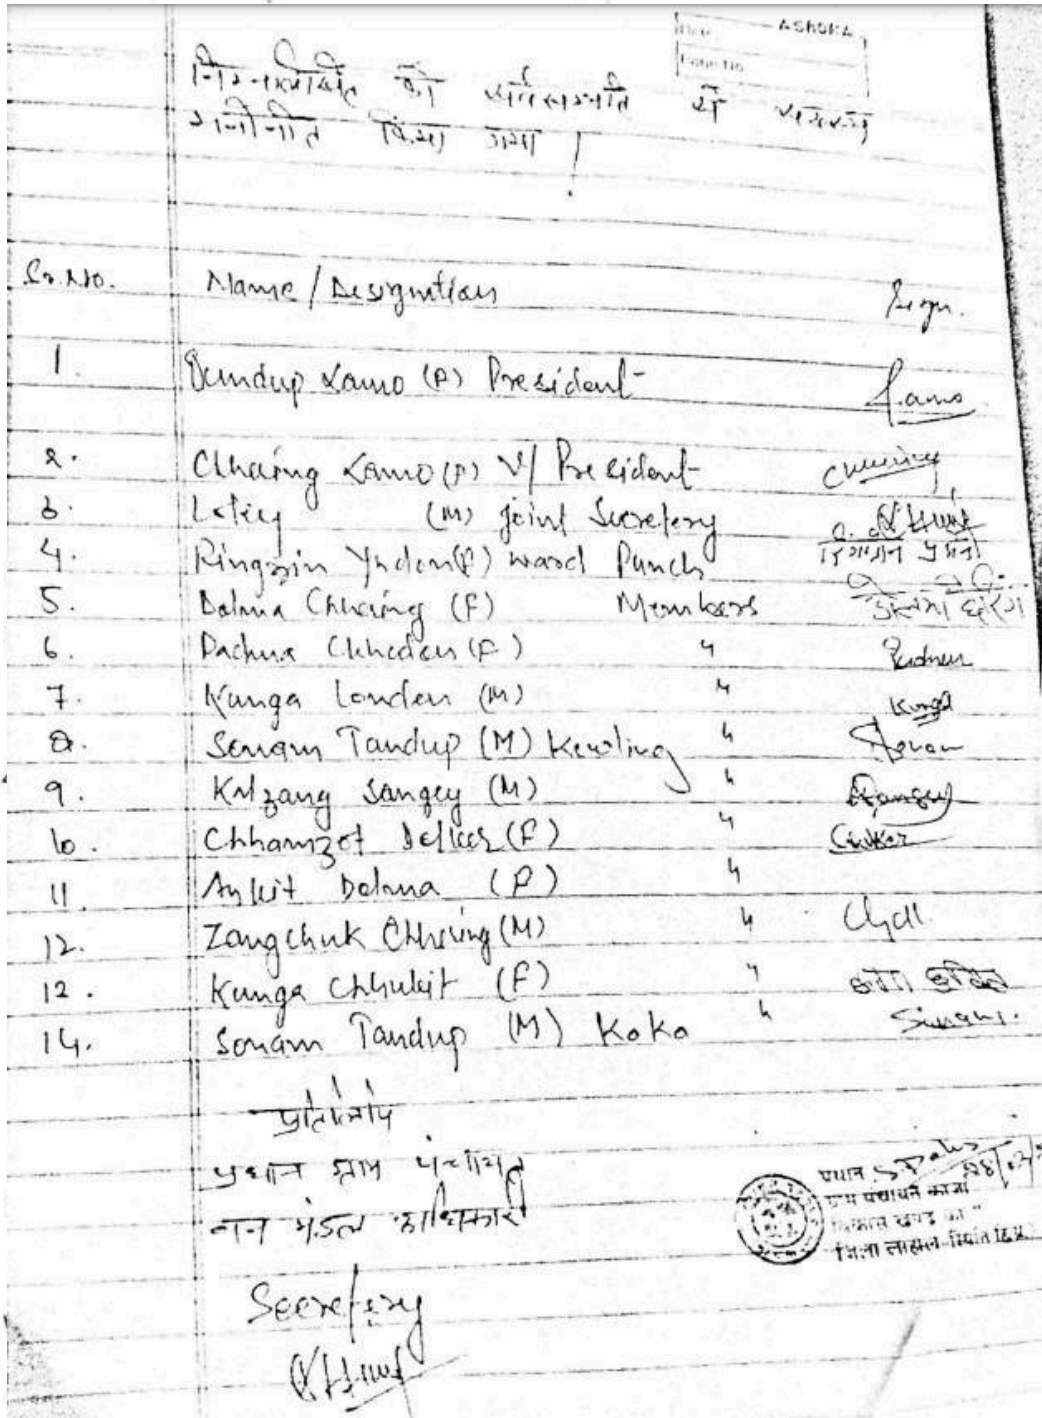 ASHOKA
Page No
निम्नलिखित को सर्वसम्मति से सदस्य
मनोनीत किया गया ।
Sr. No. Name / Designation Sign.
1. Dundup Lamo (F) President Lamo
2. Chhering Lamo (F) V/ President Chhering
3. Lotey (M) Joint Secretery
4. Ringzin Yudon (F) ward Punch
5. Dolma Chhering (F) Members
6. Pachma Chhoden (F) "
7. Kunga Londen (M) " Kunga
8. Sonam Tandup (M) Kewling " Sonam
9. Kalzang Sangey (M) " Sangey
10. Chhamzot Dolker (F) "
11 Ankit Dolma (F) "
12. Zangchuk Chhering (M) "
12. Kunga Chhukit (F) "
14. Sonam Tandup (M) Koko " Sonam.
प्रतिलिपि
प्रधान ग्राम पंचायत
वन मंडल अधिकारी
प्रधान
ग्राम पंचायत काजा
विकास खण्ड का
जिला लाहौल-स्पिति हि.प्र.
Secretery